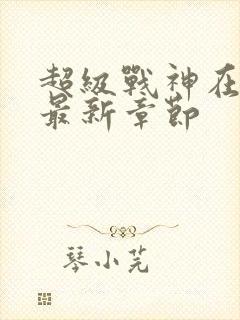 超級戰神在
最新章節
琴小芼